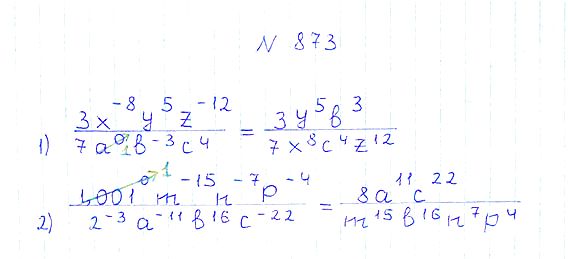 N 873
1) 3x⁻⁸y⁵z⁻¹² / 7a⁰ 1 b⁻³c⁴ = 3y⁵b³ / 7x⁸c⁴z¹²
2) 1,001⁰ 1 m⁻¹⁵n⁻⁷p⁻⁴ / 2⁻³a⁻¹¹b¹⁶c⁻²² = 8a¹¹c²² / m¹⁵b¹⁶n⁷p⁴